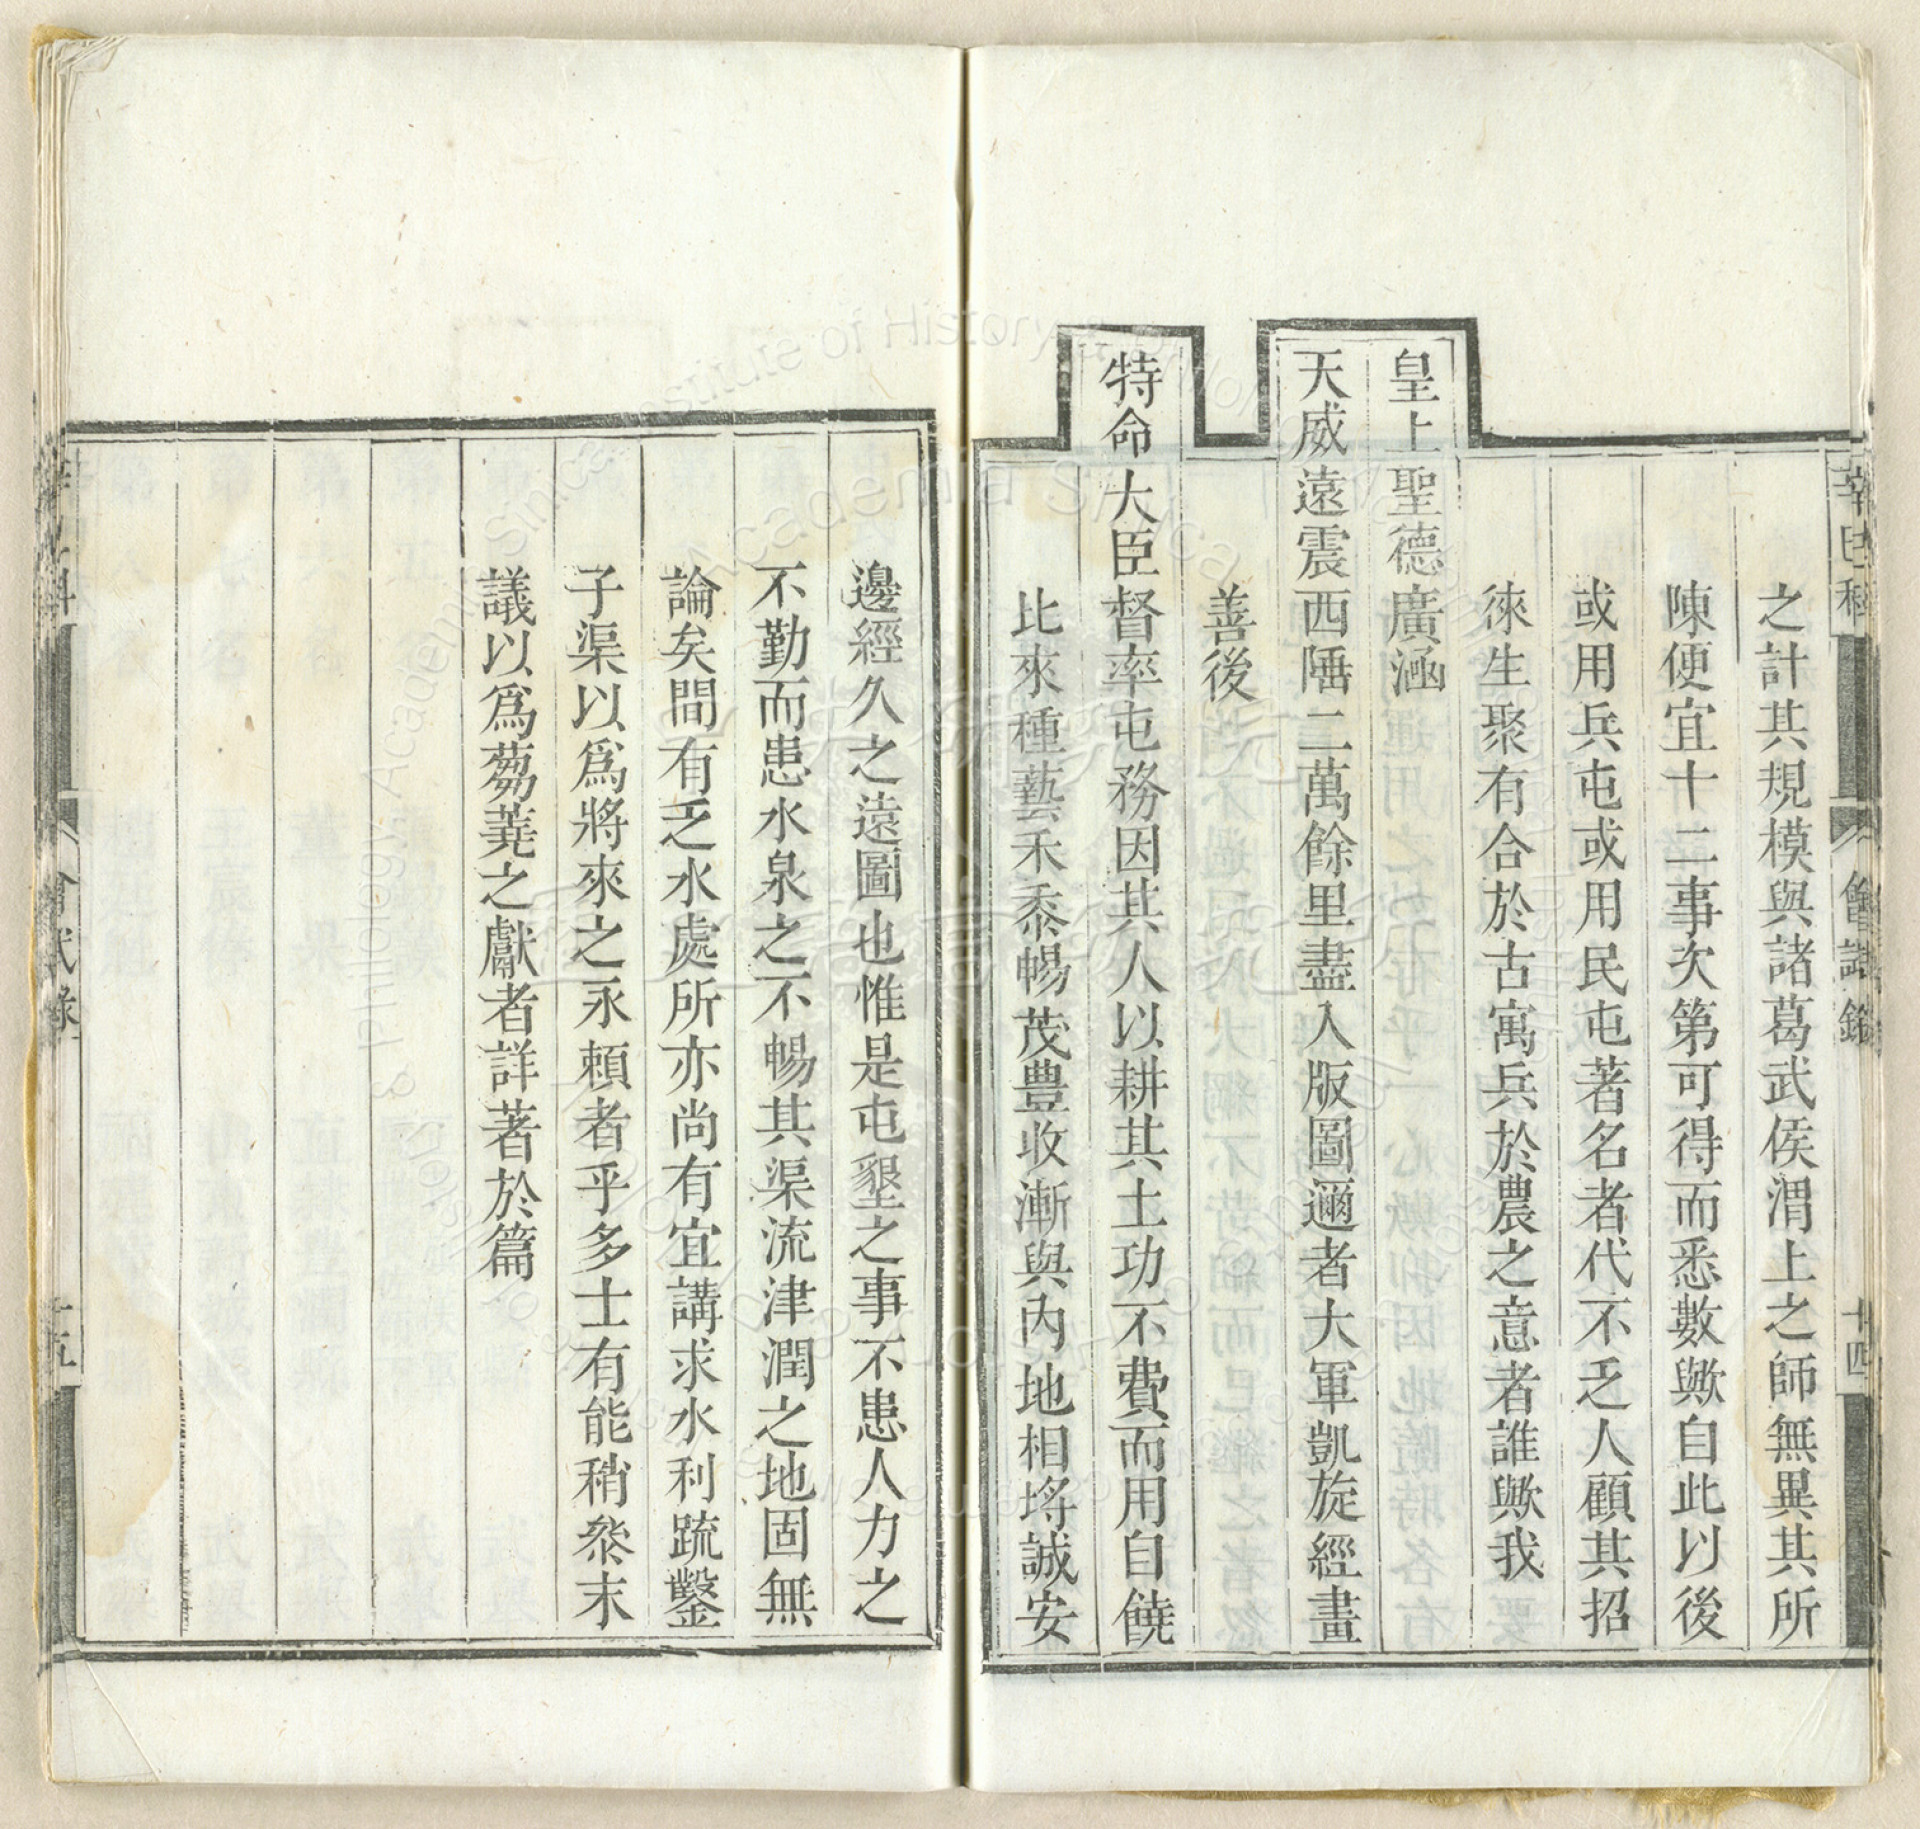 辛巳科 會試錄 十四
之計其規模與諸葛武侯渭上之師無異其所
陳便宜十二事次第可得而悉數歟自此以後
或用兵屯或用民屯著名者代不乏人顧其招
徠生聚有合於古寓兵於農之意者誰歟我
皇上聖德廣涵
天威遠震西陲二萬餘里盡入版圖邇者大軍凱旋經畫
善後
特命大臣督率屯務因其人以耕其土功不費而用自饒
比來種藝禾黍暢茂豊收漸與內地相埒誠安
邊經久之遠圖也惟是屯墾之事不患人力之
不勤而患水泉之不暢其渠流津潤之地固無
論矣間有乏水處所亦尚有宜講求水利疏鑿
子渠以爲將來之永賴者乎多士有能稍叅末
議以爲蒭蕘之獻者詳著於篇
科 會試錄
Institute of History & Philology
Academia Sinica